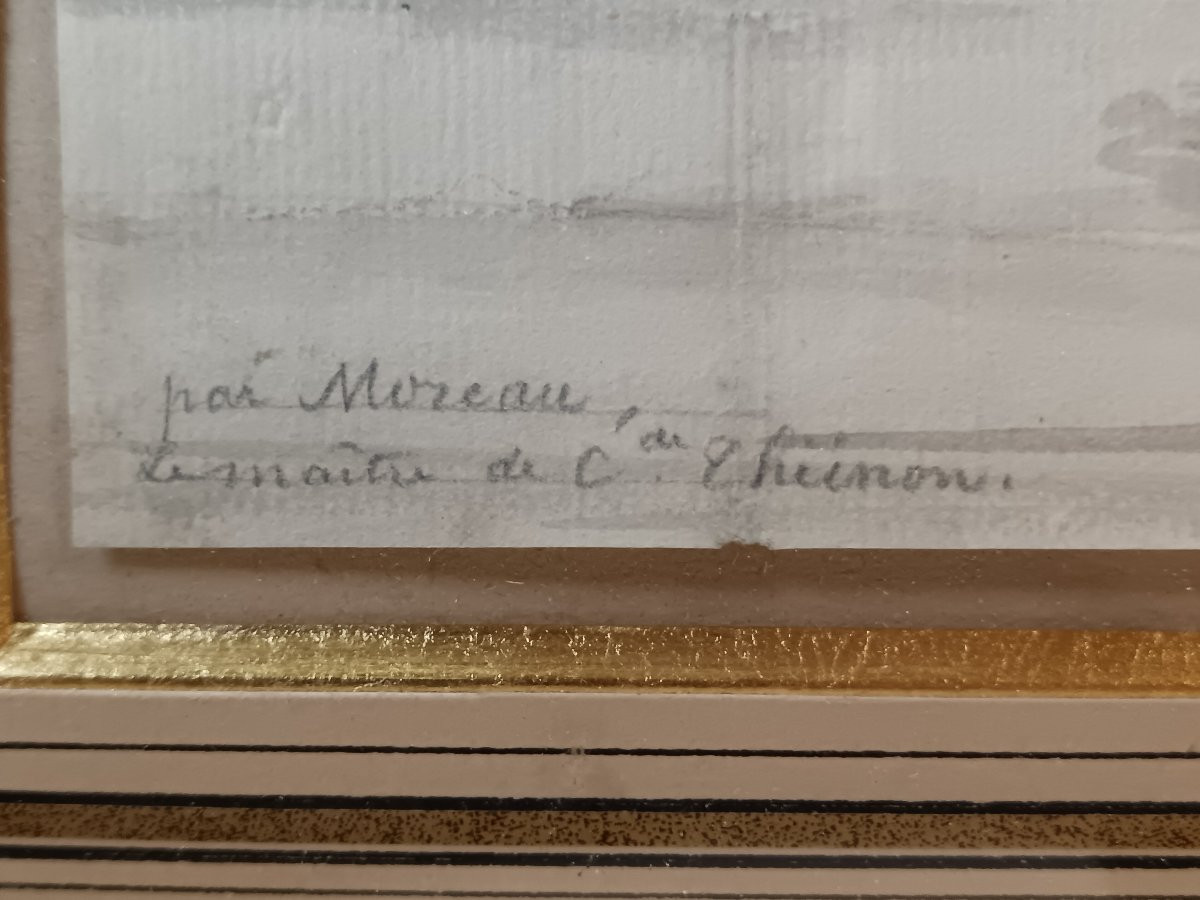 par Moreau,
Le maître de C. de Thuinon.